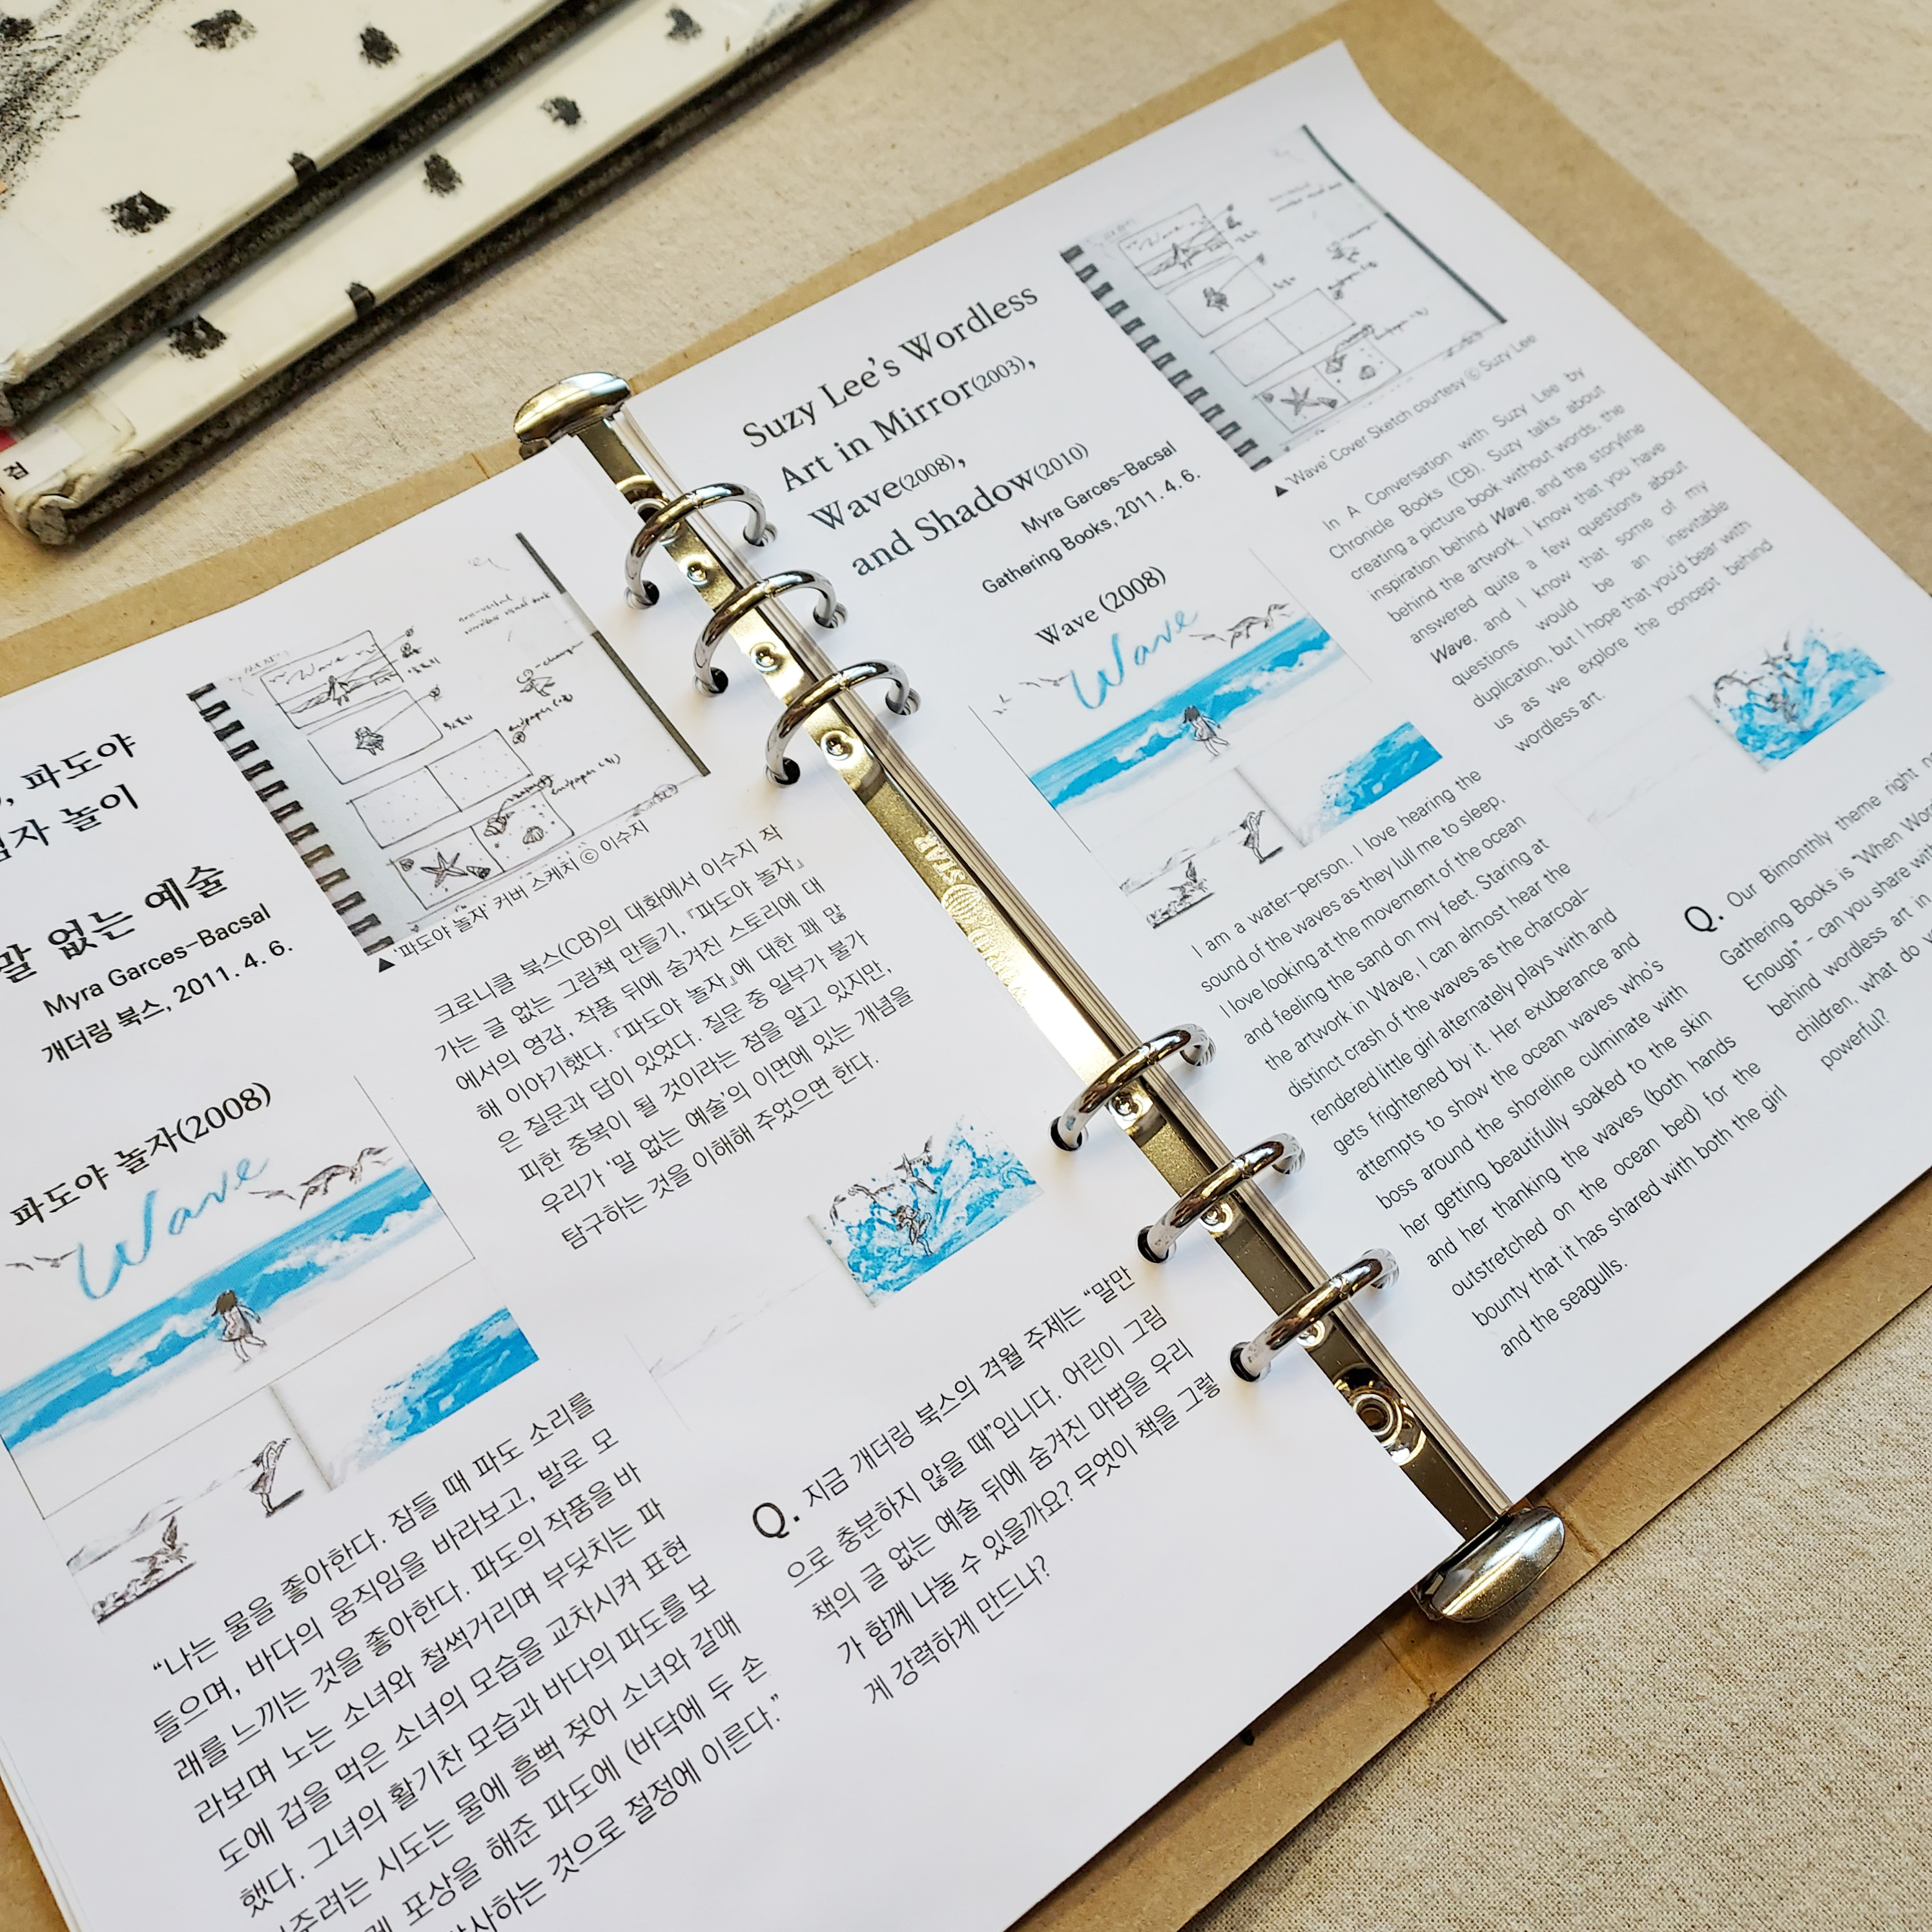 검
, 파도야
림자 놀이
말 없는 예술
Myra Garces-Bacsal
개더링 북스, 2011. 4. 6.
파도야 놀자(2008)
Wave
“나는 물을 좋아한다. 잠들 때 파도 소리를
들으며, 바다의 움직임을 바라보고, 발로 모
래를 느끼는 것을 좋아한다. 파도의 작품을 바
라보며 노는 소녀와 철썩거리며 부딪치는 파
도에 겁을 먹은 소녀의 모습을 교차시켜 표현
했다. 그녀의 활기찬 모습과 바다의 파도를 보
주려는 시도는 물에 흠뻑 젖어 소녀와 갈매
포상을 해준 파도에 (바닥에 두 손
사하는 것으로 절정에 이른다.”
Wave
▲ ‘파도야 놀자’ 커버 스케치 ⓒ 이수지
크로니클 북스(CB)의 대화에서 이수지 작
가는 글 없는 그림책 만들기, 『파도야 놀자』
에서의 영감, 작품 뒤에 숨겨진 스토리에 대
해 이야기했다. 『파도야 놀자』에 대한 꽤 많
은 질문과 답이 있었다. 질문 중 일부가 불가
피한 중복이 될 것이라는 점을 알고 있지만,
우리가 ‘말 없는 예술’의 이면에 있는 개념을
탐구하는 것을 이해해 주었으면 한다.
Q. 지금 개더링 북스의 격월 주제는 “말만
으로 충분하지 않을 때”입니다. 어린이 그림
책의 글 없는 예술 뒤에 숨겨진 마법을 우리
가 함께 나눌 수 있을까요? 무엇이 책을 그렇
게 강력하게 만드나?
Suzy Lee’s Wordless
Art in Mirror(2003),
Wave(2008),
and Shadow(2010)
Myra Garces-Bacsal
Gathering Books, 2011. 4. 6.
Wave (2008)
Wave
I am a water-person. I love hearing the
sound of the waves as they lull me to sleep,
I love looking at the movement of the ocean
and feeling the sand on my feet. Staring at
the artwork in Wave, I can almost hear the
distinct crash of the waves as the charcoal-
rendered little girl alternately plays with and
gets frightened by it. Her exuberance and
attempts to show the ocean waves who’s
boss around the shoreline culminate with
her getting beautifully soaked to the skin
and her thanking the waves (both hands
outstretched on the ocean bed) for the
bounty that it has shared with both the girl
and the seagulls.
Wave
▲ ‘Wave’ Cover Sketch courtesy ⓒ Suzy Lee
In A Conversation with Suzy Lee by
Chronicle Books (CB), Suzy talks about
creating a picture book without words, the
inspiration behind Wave, and the storyline
behind the artwork. I know that you have
answered quite a few questions about
Wave, and I know that some of my
questions would be an inevitable
duplication, but I hope that you’d bear with
us as we explore the concept behind
wordless art.
Q. Our Bimonthly theme right
Gathering Books is “When
Enough” - can you share
behind wordless art in
children, what do
powerful?